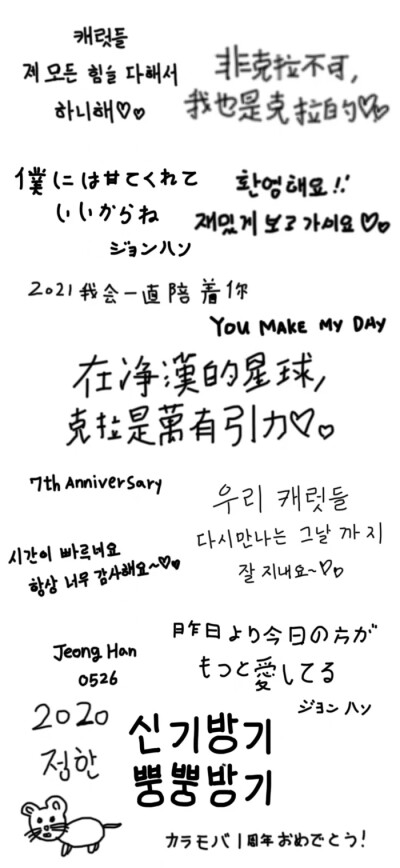 캐럿들
제 모든 힘을 다해서
하니해♡♡
非克拉不可,
我也是克拉的♡♡
僕には甘てくれて
いいからね
ジョンハン
환영해요!!
재밌게 보고 가세요♡♡
2021 我会一直陪着你
YOU MAKE MY DAY
在净漢的星球,
克拉是萬有引力♡♡
7th Anniversary
우리 캐럿들
다시만나는 그날 까지
잘 지내요~♡♡
시간이 빠르네요
항상 너무 감사해요~♡♡
昨日より今日の方が
もっと愛してる
ジョンハン
Jeong Han
0526
2020
정한
신기방기
뿡뿡방기
カラモバ1周年おめでとう!